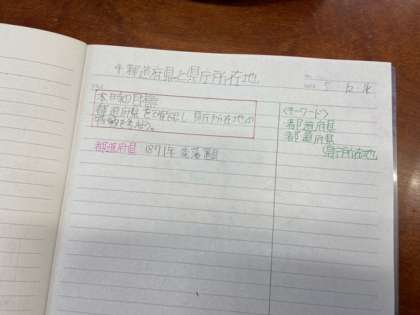 4 都道府県と県庁所在地
本時の目標
都道府県を確認し県庁所在地の
特徴を
都道府県 1871年 廃藩置
<キーワード>
都道府県
都道府県
県庁所在地